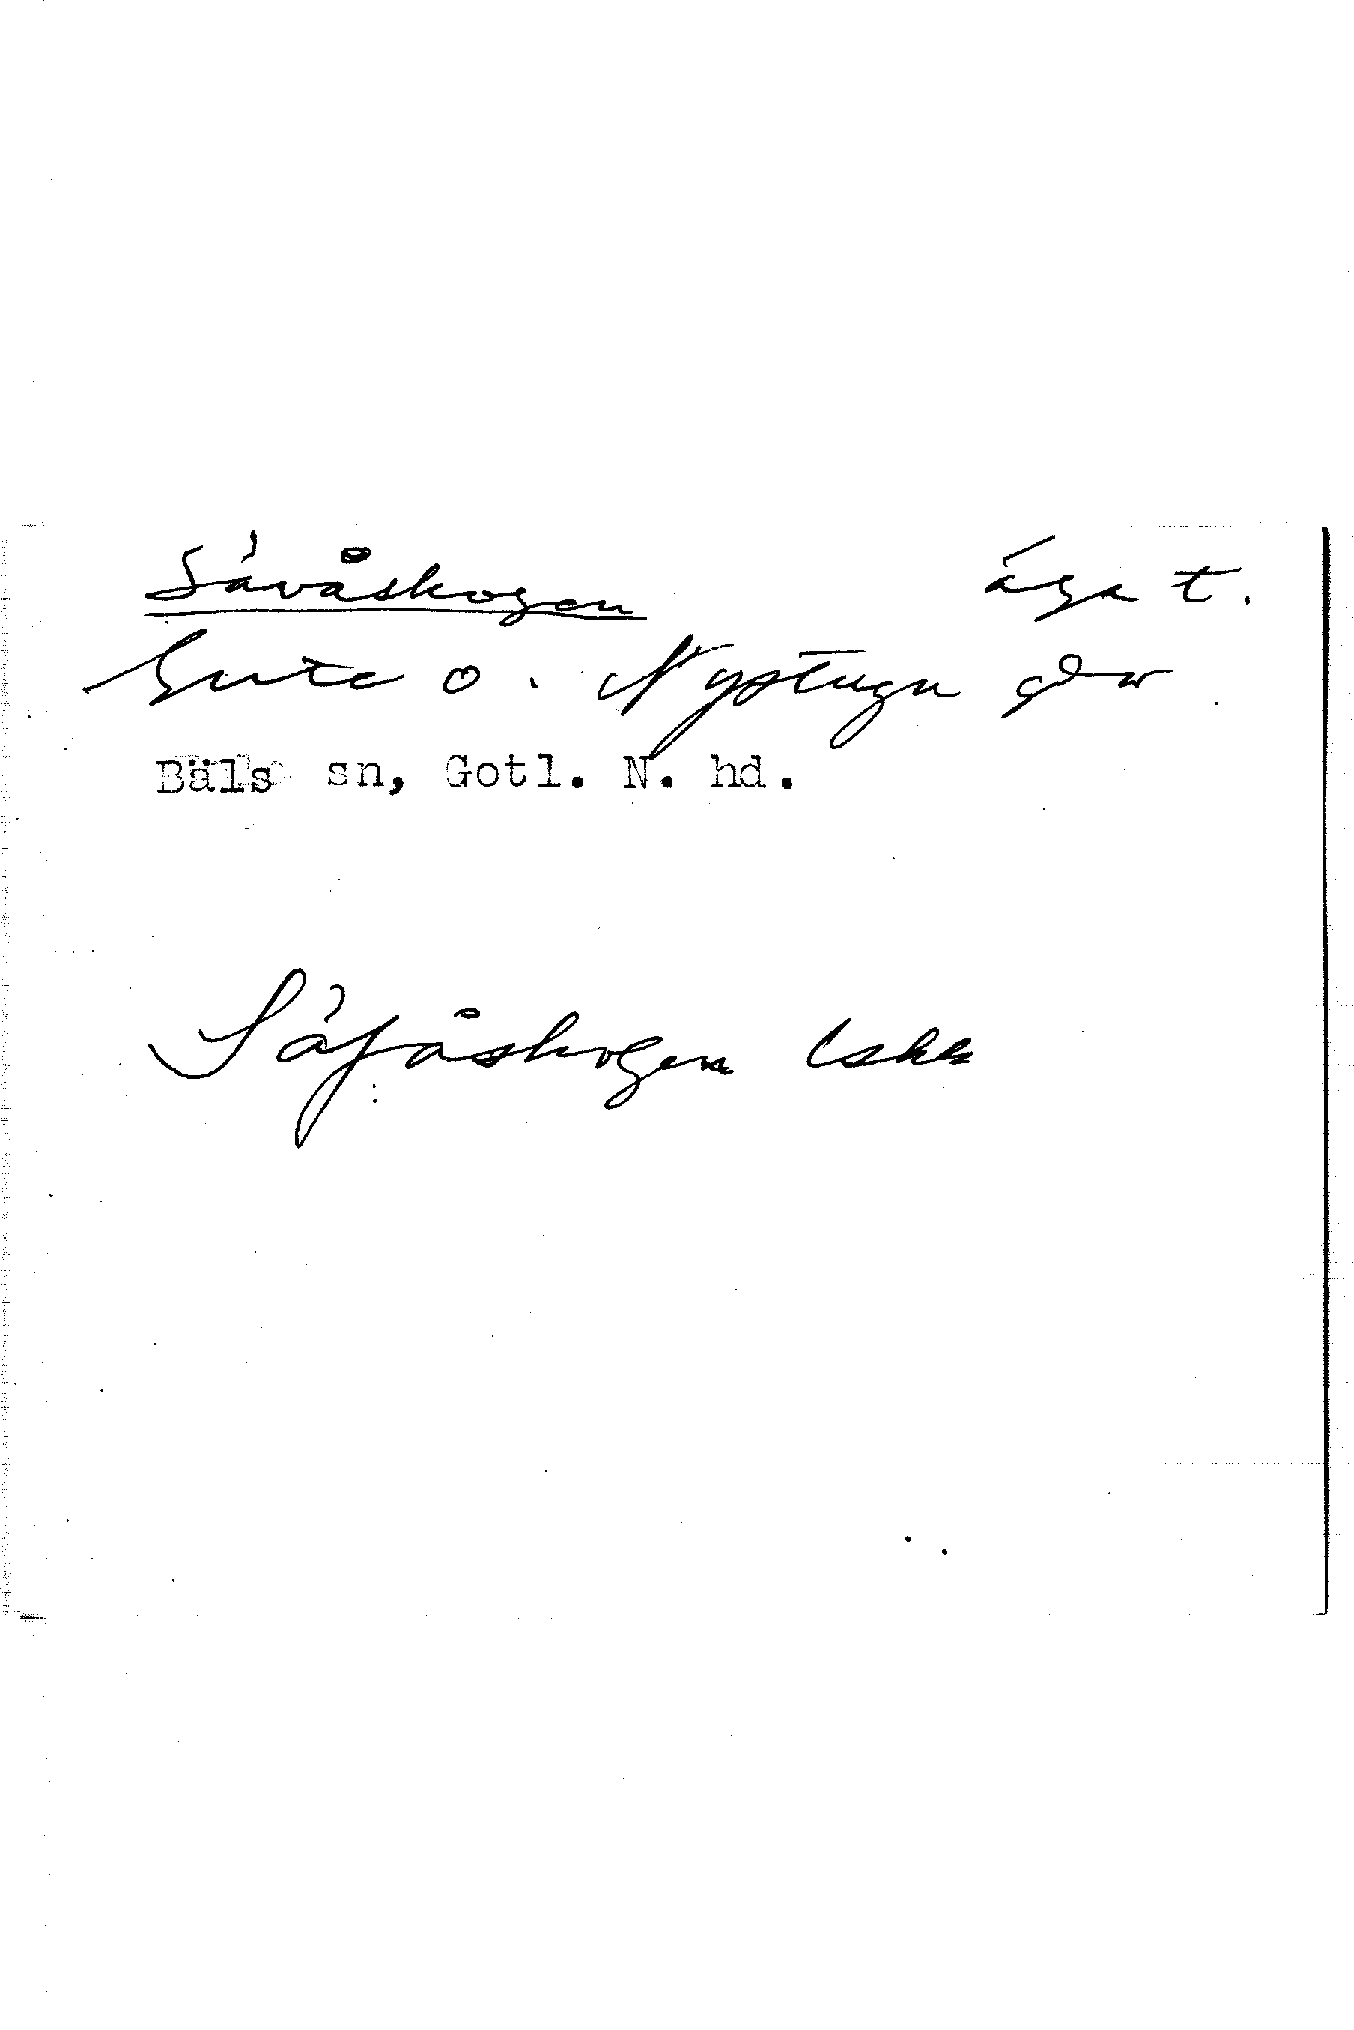 Såvåskogen äga t.
Gute o. Nystugu gdr
Bäls sn, Gotl. N. hd.
Såfåskogen